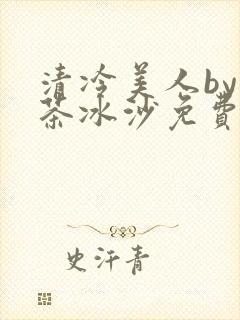 清冷美人by
茶冰沙免費
史汗青